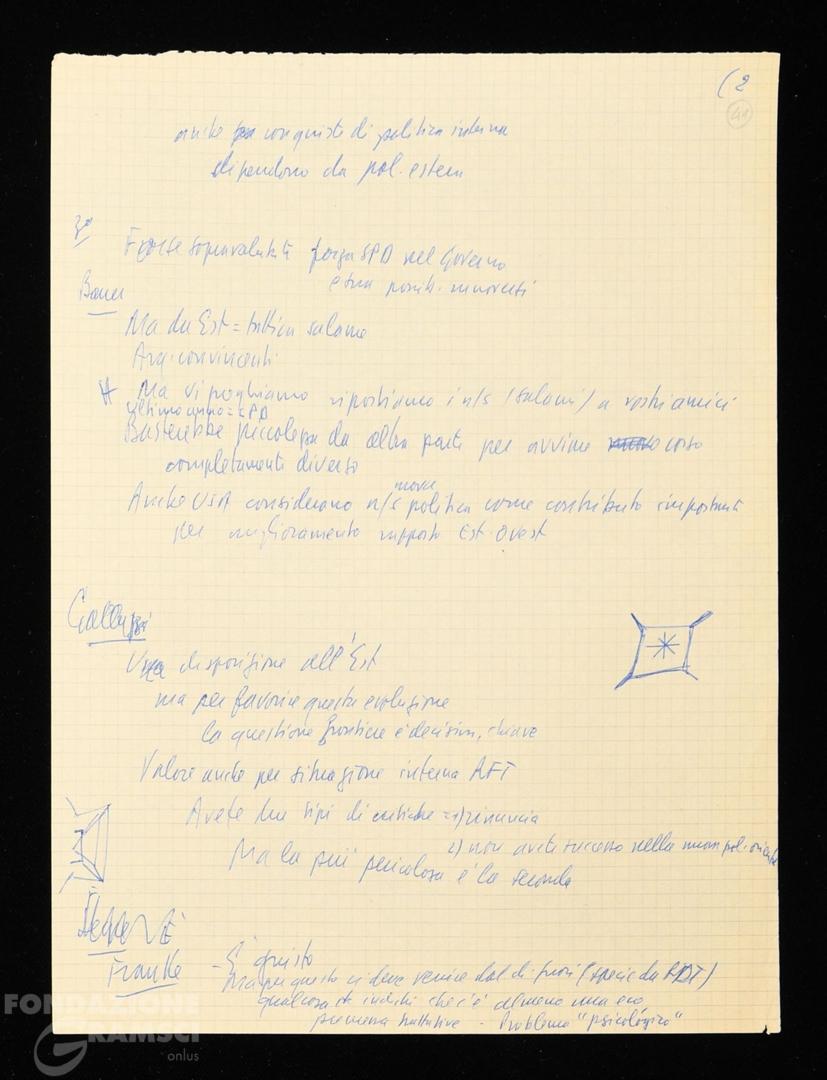 (2
41
anche conquiste di politica interna
dipendono da pol. estera
3°
Forse sopravalutata forza SPD nel Governo
e sua possib. muoversi
Bauer
Ma da Est = tattica salame
Arg. convincenti
Ma vi preghiamo riportiamo i n/s (salami) a vostri amici
ultimo anno = SPD
Basterebbe piccolezza da altra parte per avviare corso
completamente diverso
nuova
Anche USA considerano n/s politica come contributo importante
per miglioramento rapporto Est-Ovest
Galluzzi
Vera disposizione all'Est
ma per favorire questa evoluzione
la questione frontiere è decisiva, chiave
Valore anche per situazione interna RFT
Avete due tipi di critiche = 1) rinuncia
2) non avete successo nella nuova pol. orientale
Ma la più pericolosa è la seconda
Franke - È giusto
Ma per questo ci deve venire dal di fuori (specie da RDT)
qualcosa che indichi che c'è almeno una eco
premessa trattative - Problema "psicologico"
FONDAZIONE
GRAMSCI
onlus